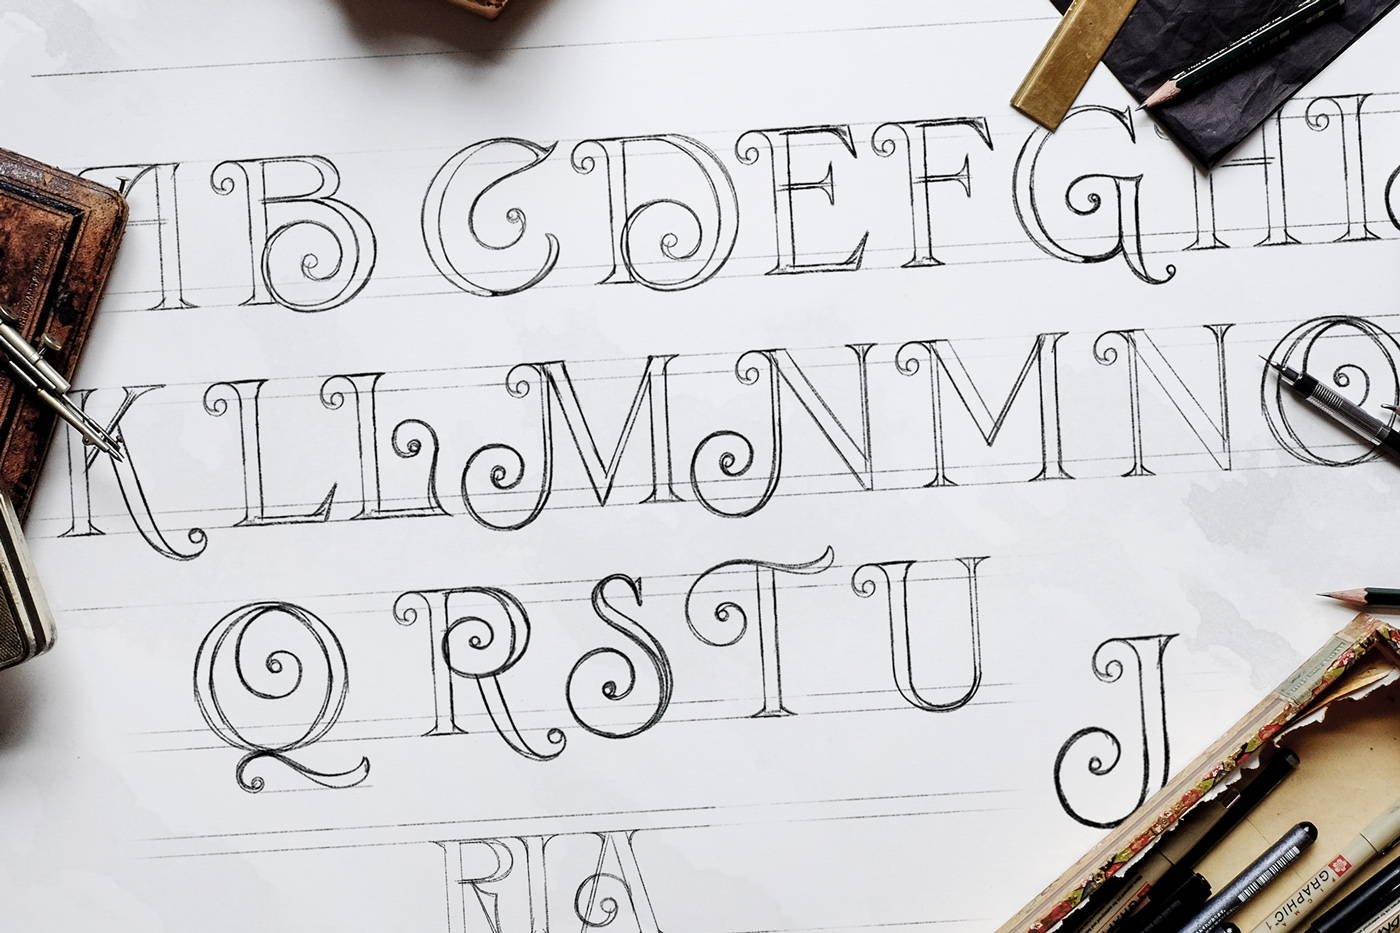 A B C D E F G H I
K L L M N M N O
Q R S T U J
R I A
GRAPHIC 1